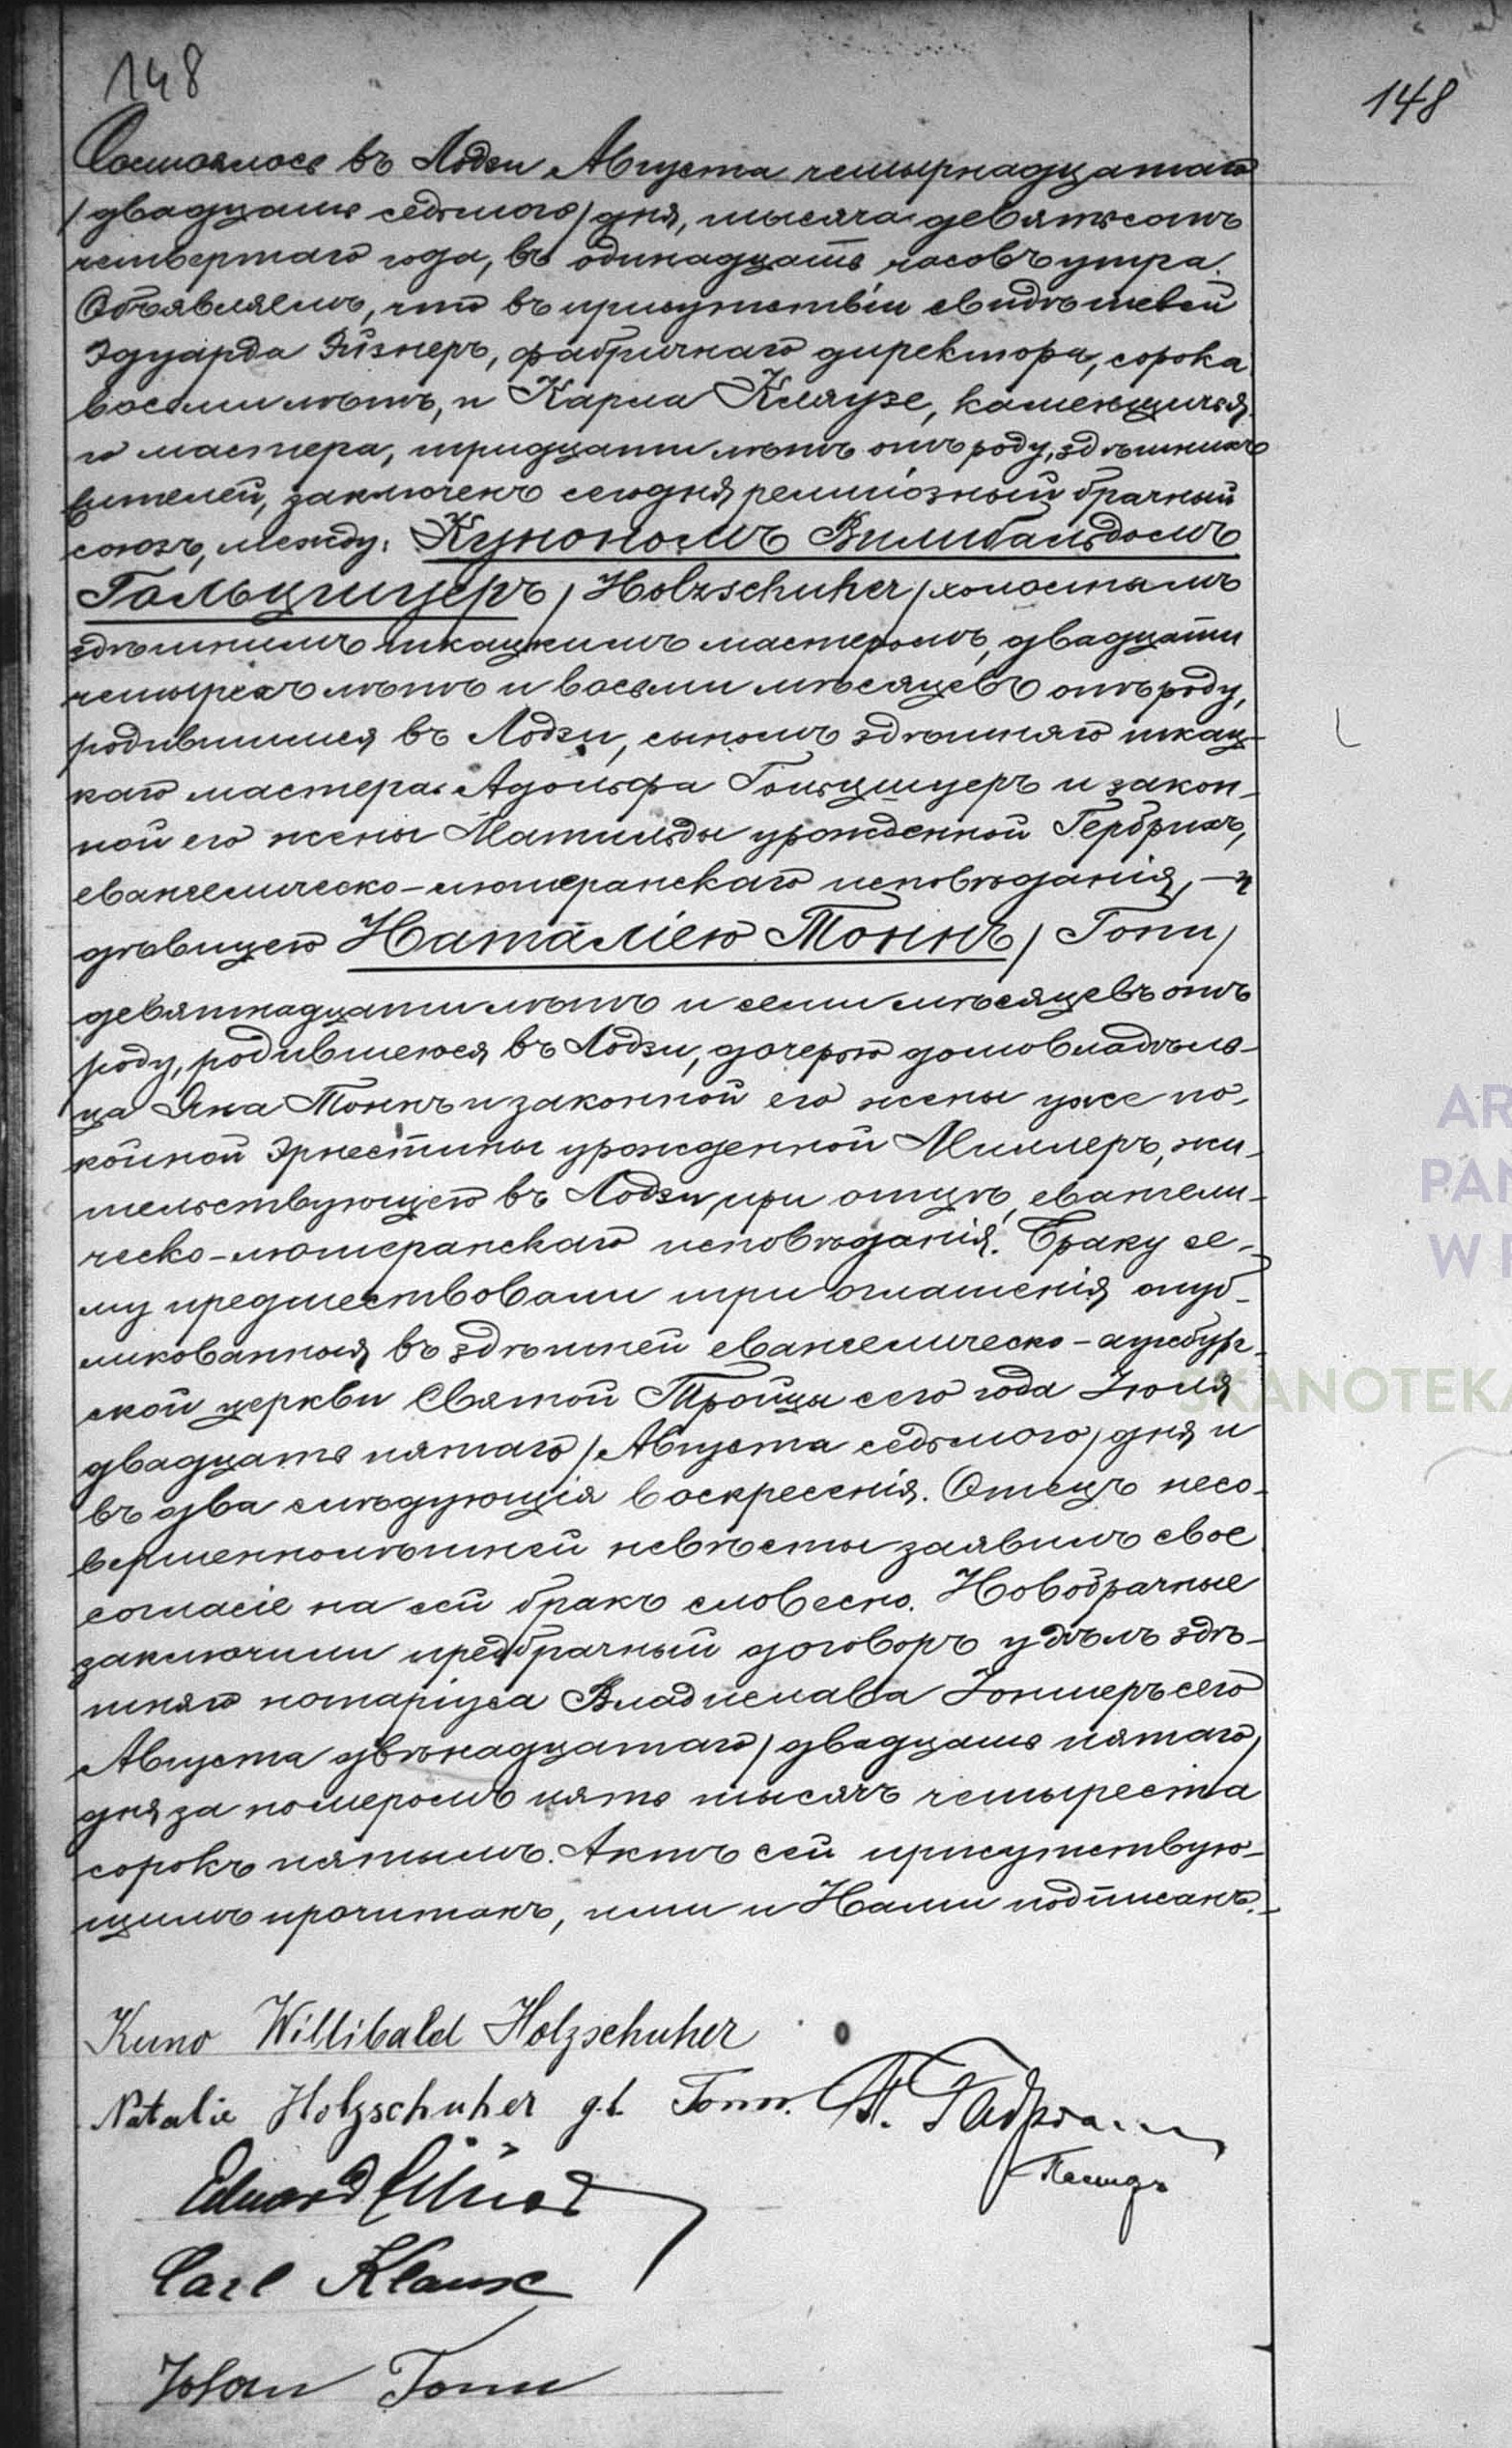 148
148
Состоялось въ Лодзи Августа четырнадцатаго
/двадцать седьмого/ дня, тысяча девятьсотъ
четвертаго года, въ одинадцать часовъ утра.
Объявляемъ, что въ присутствіи свидѣтелей
Эдуарда Эйзнеръ, фабричнаго директора, сорока
восьми лѣтъ, и Карла Клаузе, каменщичья
го мастера, тридцати лѣтъ отъ роду, здѣшнихъ
жителей, заключенъ сегодня религіозный брачный
союзъ, между: Кунономъ Вилибальдомъ
Гольцшуеръ /Holzschuher/ холостымъ
здѣшнимъ ткацкимъ мастеромъ, двадцати
четырехъ лѣтъ и восьми мѣсяцевъ отъ роду,
родившимся въ Лодзи, сыномъ здѣшняго ткац-
каго мастера Адольфа Гольцшуеръ и закон-
ной его жены Матильды урожденной Гербрихъ,
евангелическо-лютеранскаго исповѣданія, — и
дѣвицею Наталіею Тоннъ /Tonn/
девятнадцати лѣтъ и семи мѣсяцевъ отъ
роду, родившеюся въ Лодзи, дочерью домовладѣль-
ца Яна Тоннъ и законной его жены уже по-
койной Эрнестины урожденной Миллеръ, жи-
тельствующею въ Лодзи, при отцѣ, евангели-
ческо-лютеранскаго исповѣданія. Браку се-
му предшествовали три оглашенія опуб-
ликованныя въ здѣшней евангелическо-аугсбург-
ской церкви Святой Тройцы сего года Іюля
двадцать пятаго /Августа седьмого/ дня и
въ два слѣдующія воскресенія. Отецъ несо-
вершеннолѣтней невѣсты заявилъ свое
согласіе на сей бракъ словесно. Новобрачные
заключили предбрачный договоръ у дѣлъ здѣ-
шняго нотаріуса Владислава Іоншеръ сего
Августа двѣнадцатаго /двадцать пятаго/
дня за номеромъ пять тысячъ четыреста
сорокъ пятымъ. Актъ сей присутствую-
щимъ прочитанъ, ими и Нами подписанъ.-
Kuno Willibald Holzschuher
Natalie Holzschuher g.b. Tonn.
Пасторъ
Eduard
Carl Klause
Johan Tonn
AR
PAN
W
SKANOTEKA